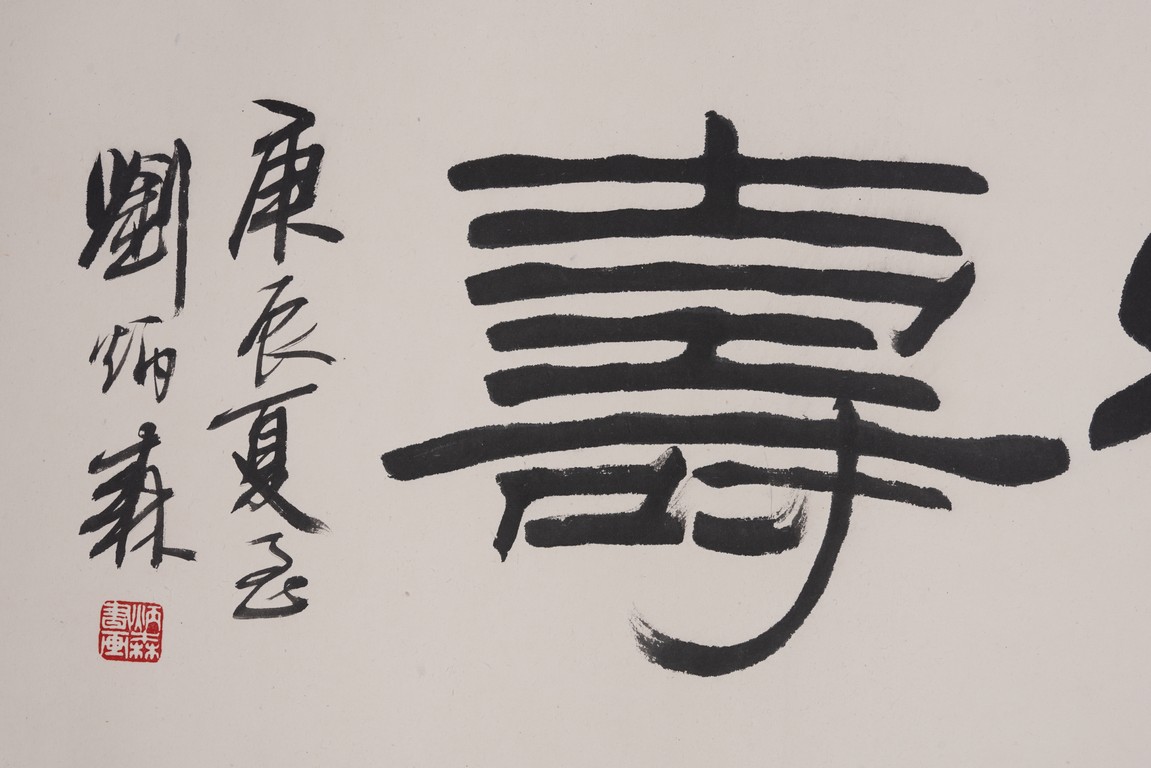 壽
庚辰夏至
劉炳森
炳森書画